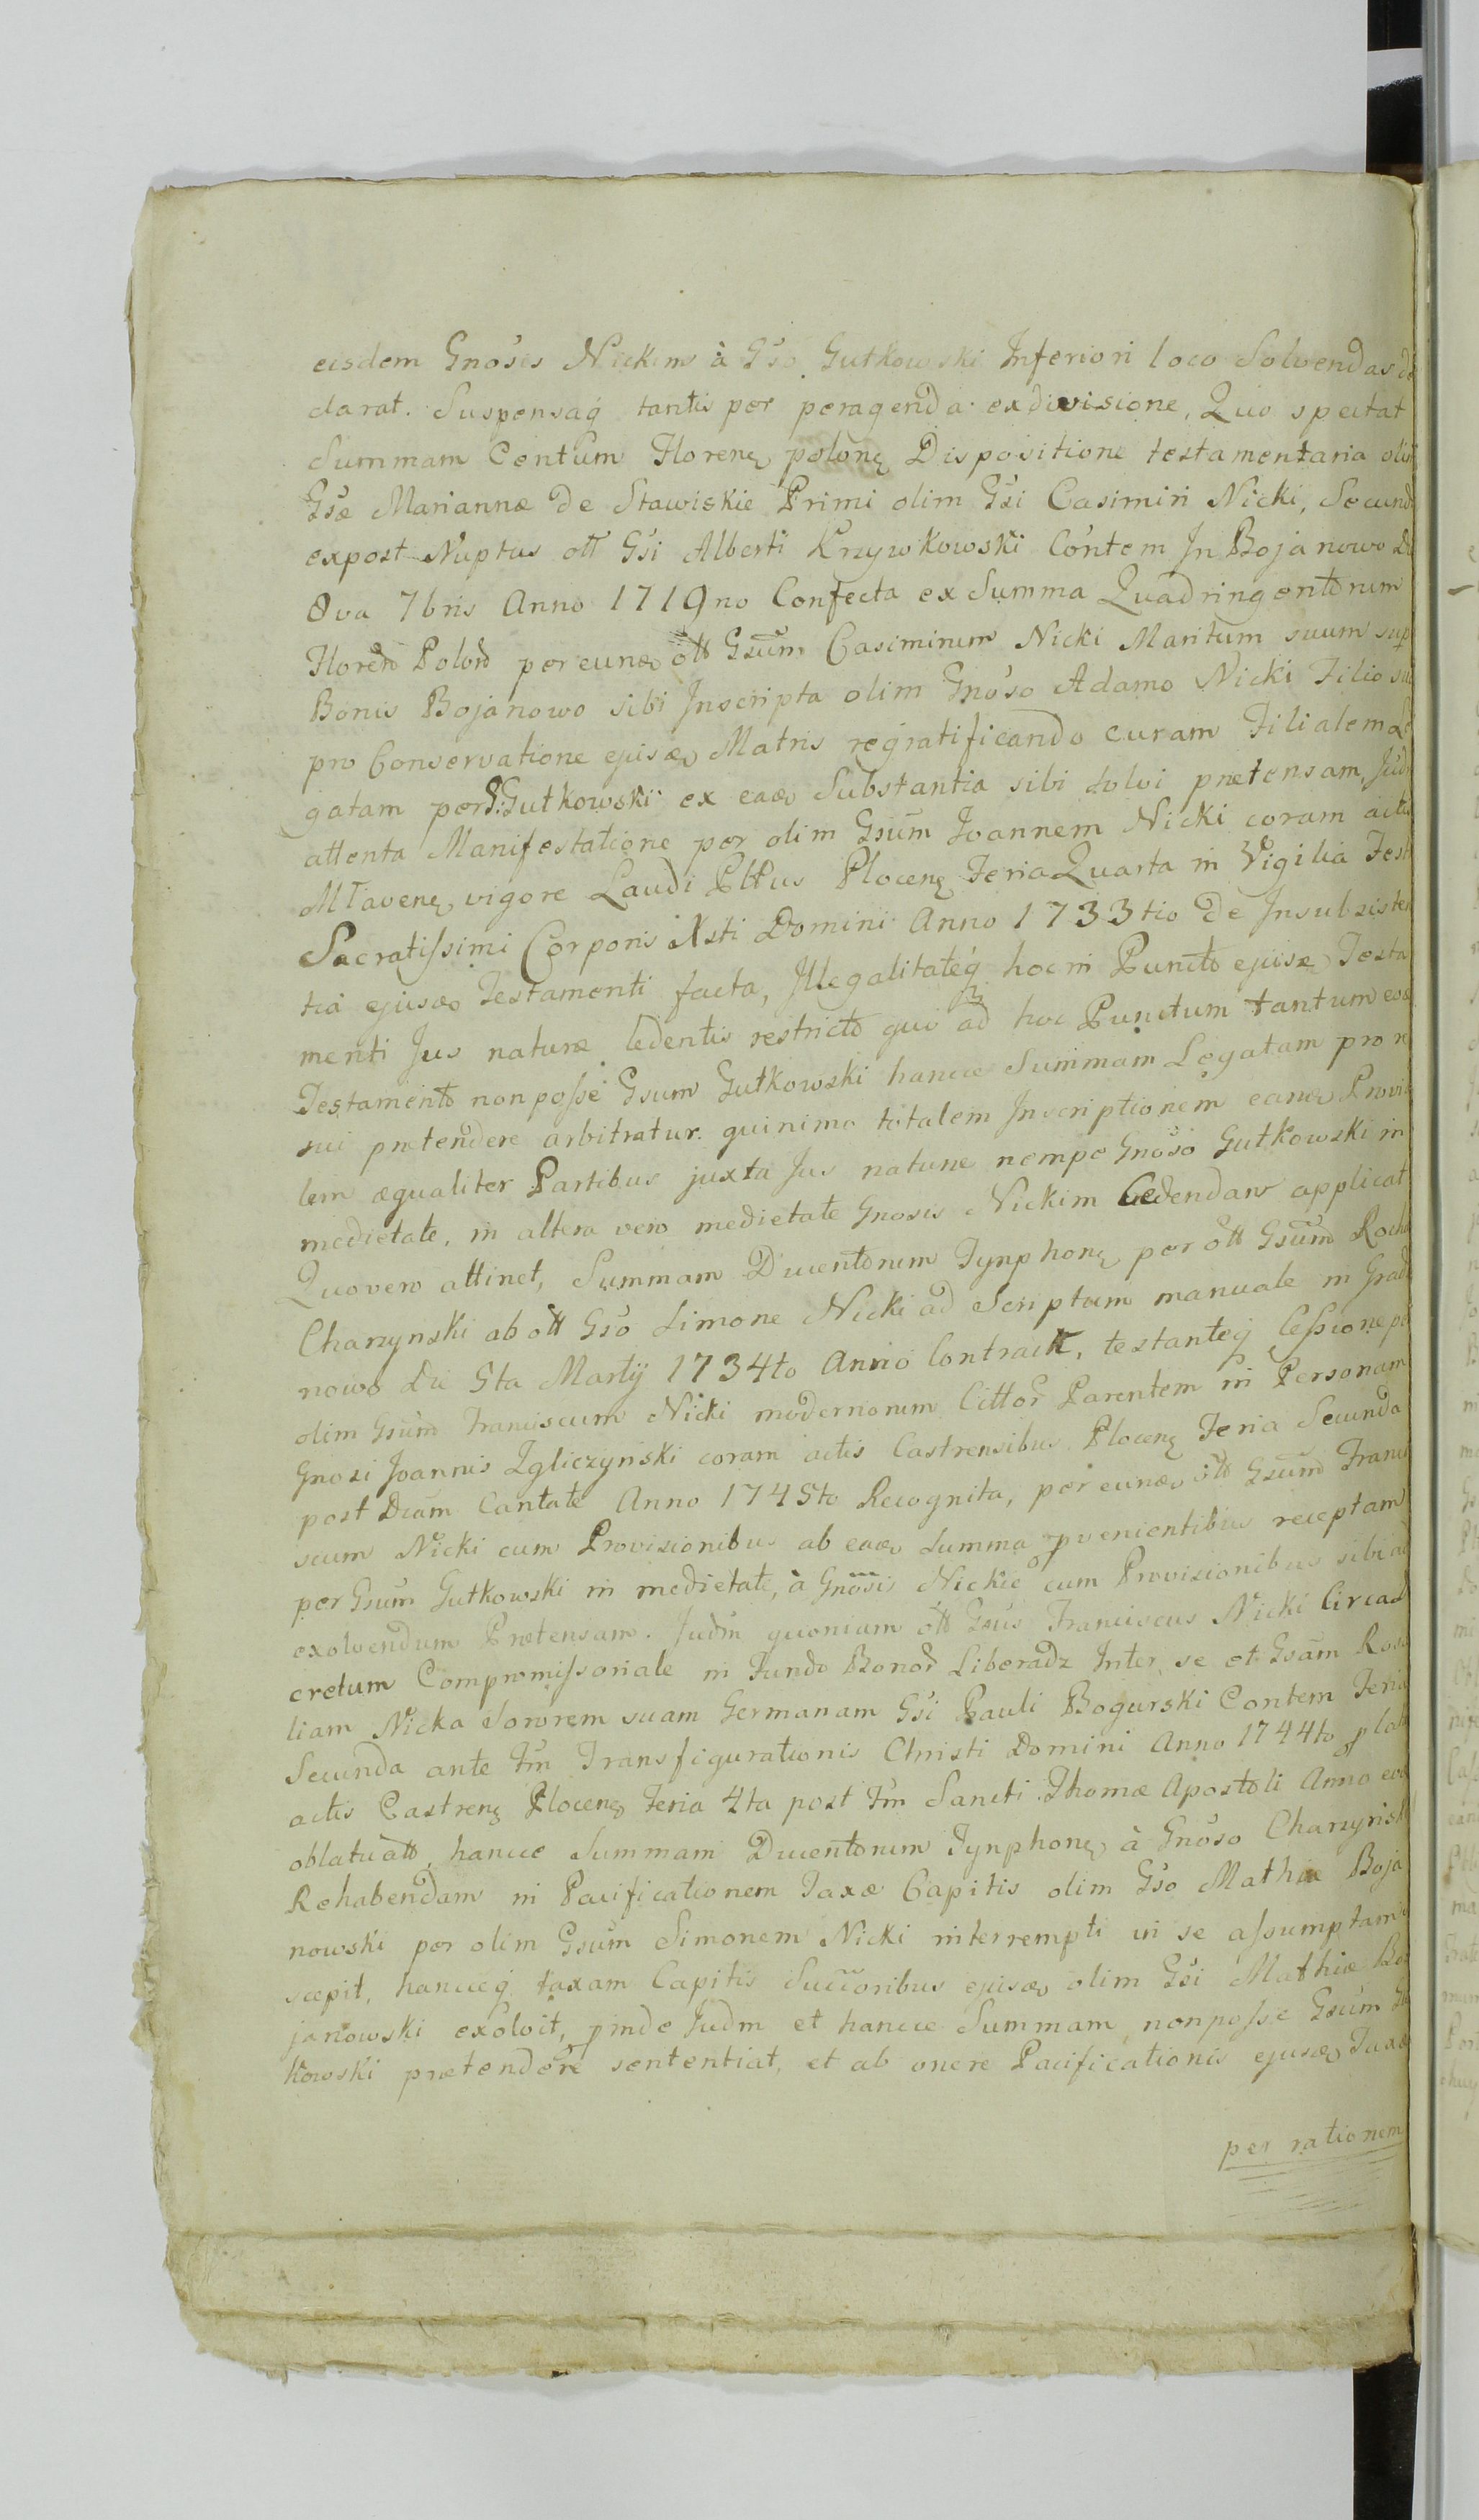 eisdem Gnosis Nickim à Gso Gutkowski Inferiori loco Solvendas de
clarat. Suspensaq tantis per peragenda exdivisione, Quo spectat
Summam Centum Floreno polono Dispositione testamentaria olim
Gsæ Mariannæ de Stawiskie Primi olim Gsi Casimiri Nicki, Secund
expost Nuptus ott Gsi Alberti Krzywkowski Contem In Bojanowo Di
8va 7bris Anno 1719no Confecta ex Summa Quadringentorum
Floren Polon per eund ott Gsum Casimirum Nicki Maritum suum sup
Bonis Bojanowo sibi Inscripta olim Gnoso Adamo Nicki Filio suo
pro Conservatione ejusd Matris regratificando curam Filialem Le
gatam per G: Gutkowski ex ead Substantia sibi solvi prætensam, Judm
attenta Manifestatione per olim Gsum Joannem Nicki coram actis
Mlaven vigore Laudi Pltus Plocen Feria Quarta in Vigilia Festi
Sacratissimi Corporis Xsti Domini Anno 1733tio de Insubsisten
tia ejusd Testamenti facta, Illegalitateq hoc in Puncto ejusd Testa
menti Jus naturæ ledentis restricto quo ad hoc Punctum tantum eod
Testamento non posse Gsum Gutkowski hancce Summam Legatam pro re
sui pretendere arbitratur. quinimo totalem Inscriptionem eand Provi
lem æqualiter Partibus juxta Jus naturæ nempe Gnoso Gutkowski in
medietate, in altera vero medietate Gnosis Nickim Cedendam applicat
Quo vero attinet, Summam Ducentorum Tynphon per ott Gsum Roch
Charzynski ab ott Gso Simone Nicki ad Scriptum manuale in Grad
nowo Die 5ta Martij 1734to Anno Contract, testanteq Cessione p
olim Gsum Franciscum Nicki modernorum Cittor Parentem in Personam
Gnosi Joannis Zgliczynski coram actis Castrensibus Plocen Feria Secunda
post Dcam Cantate Anno 1745to Recognita, per eund ott Gsum Franci
scum Nicki cum Provisionibus ab ead Summa pvenientibus receptam
per Gsum Gutkowski in medietate, à Gnosis Nickie cum Provisionibus sibi ad
exolvendum Prætensam. Judm quoniam ott Gsus Franciscus Nicki Circa d
cretum Compromissoriale in Fundo Bonor Liberadz Inter se et Gsam Rosa
liam Nicka Sororem suam Germanam Gsi Pauli Bogurski Contem Feria
Secunda ante Fm Transfigurationis Christi Domini Anno 1744to plat
actis Castren Plocen Feria 4ta post Fm Sancti Thomæ Apostoli Anno eod
oblatu hancce Summam Ducentorum Tynphon à Gnoso Charzynski
Rehabendam in Pacificationem Taxæ Capitis olim Gso Mathiæ Boja
nowski per olim Gsum Simonem Nicki interrempti in se assumptam
scepit, hancceq taxam Capitis Succoribus ejusd olim Gsi Mathiæ Bo
janowski exolvit, pinde Judm et hancce Summam non posse Gsum Gu
kowski pretendere sententiat, et ab onere Pacificationis ejusd Taxæ
per rationem